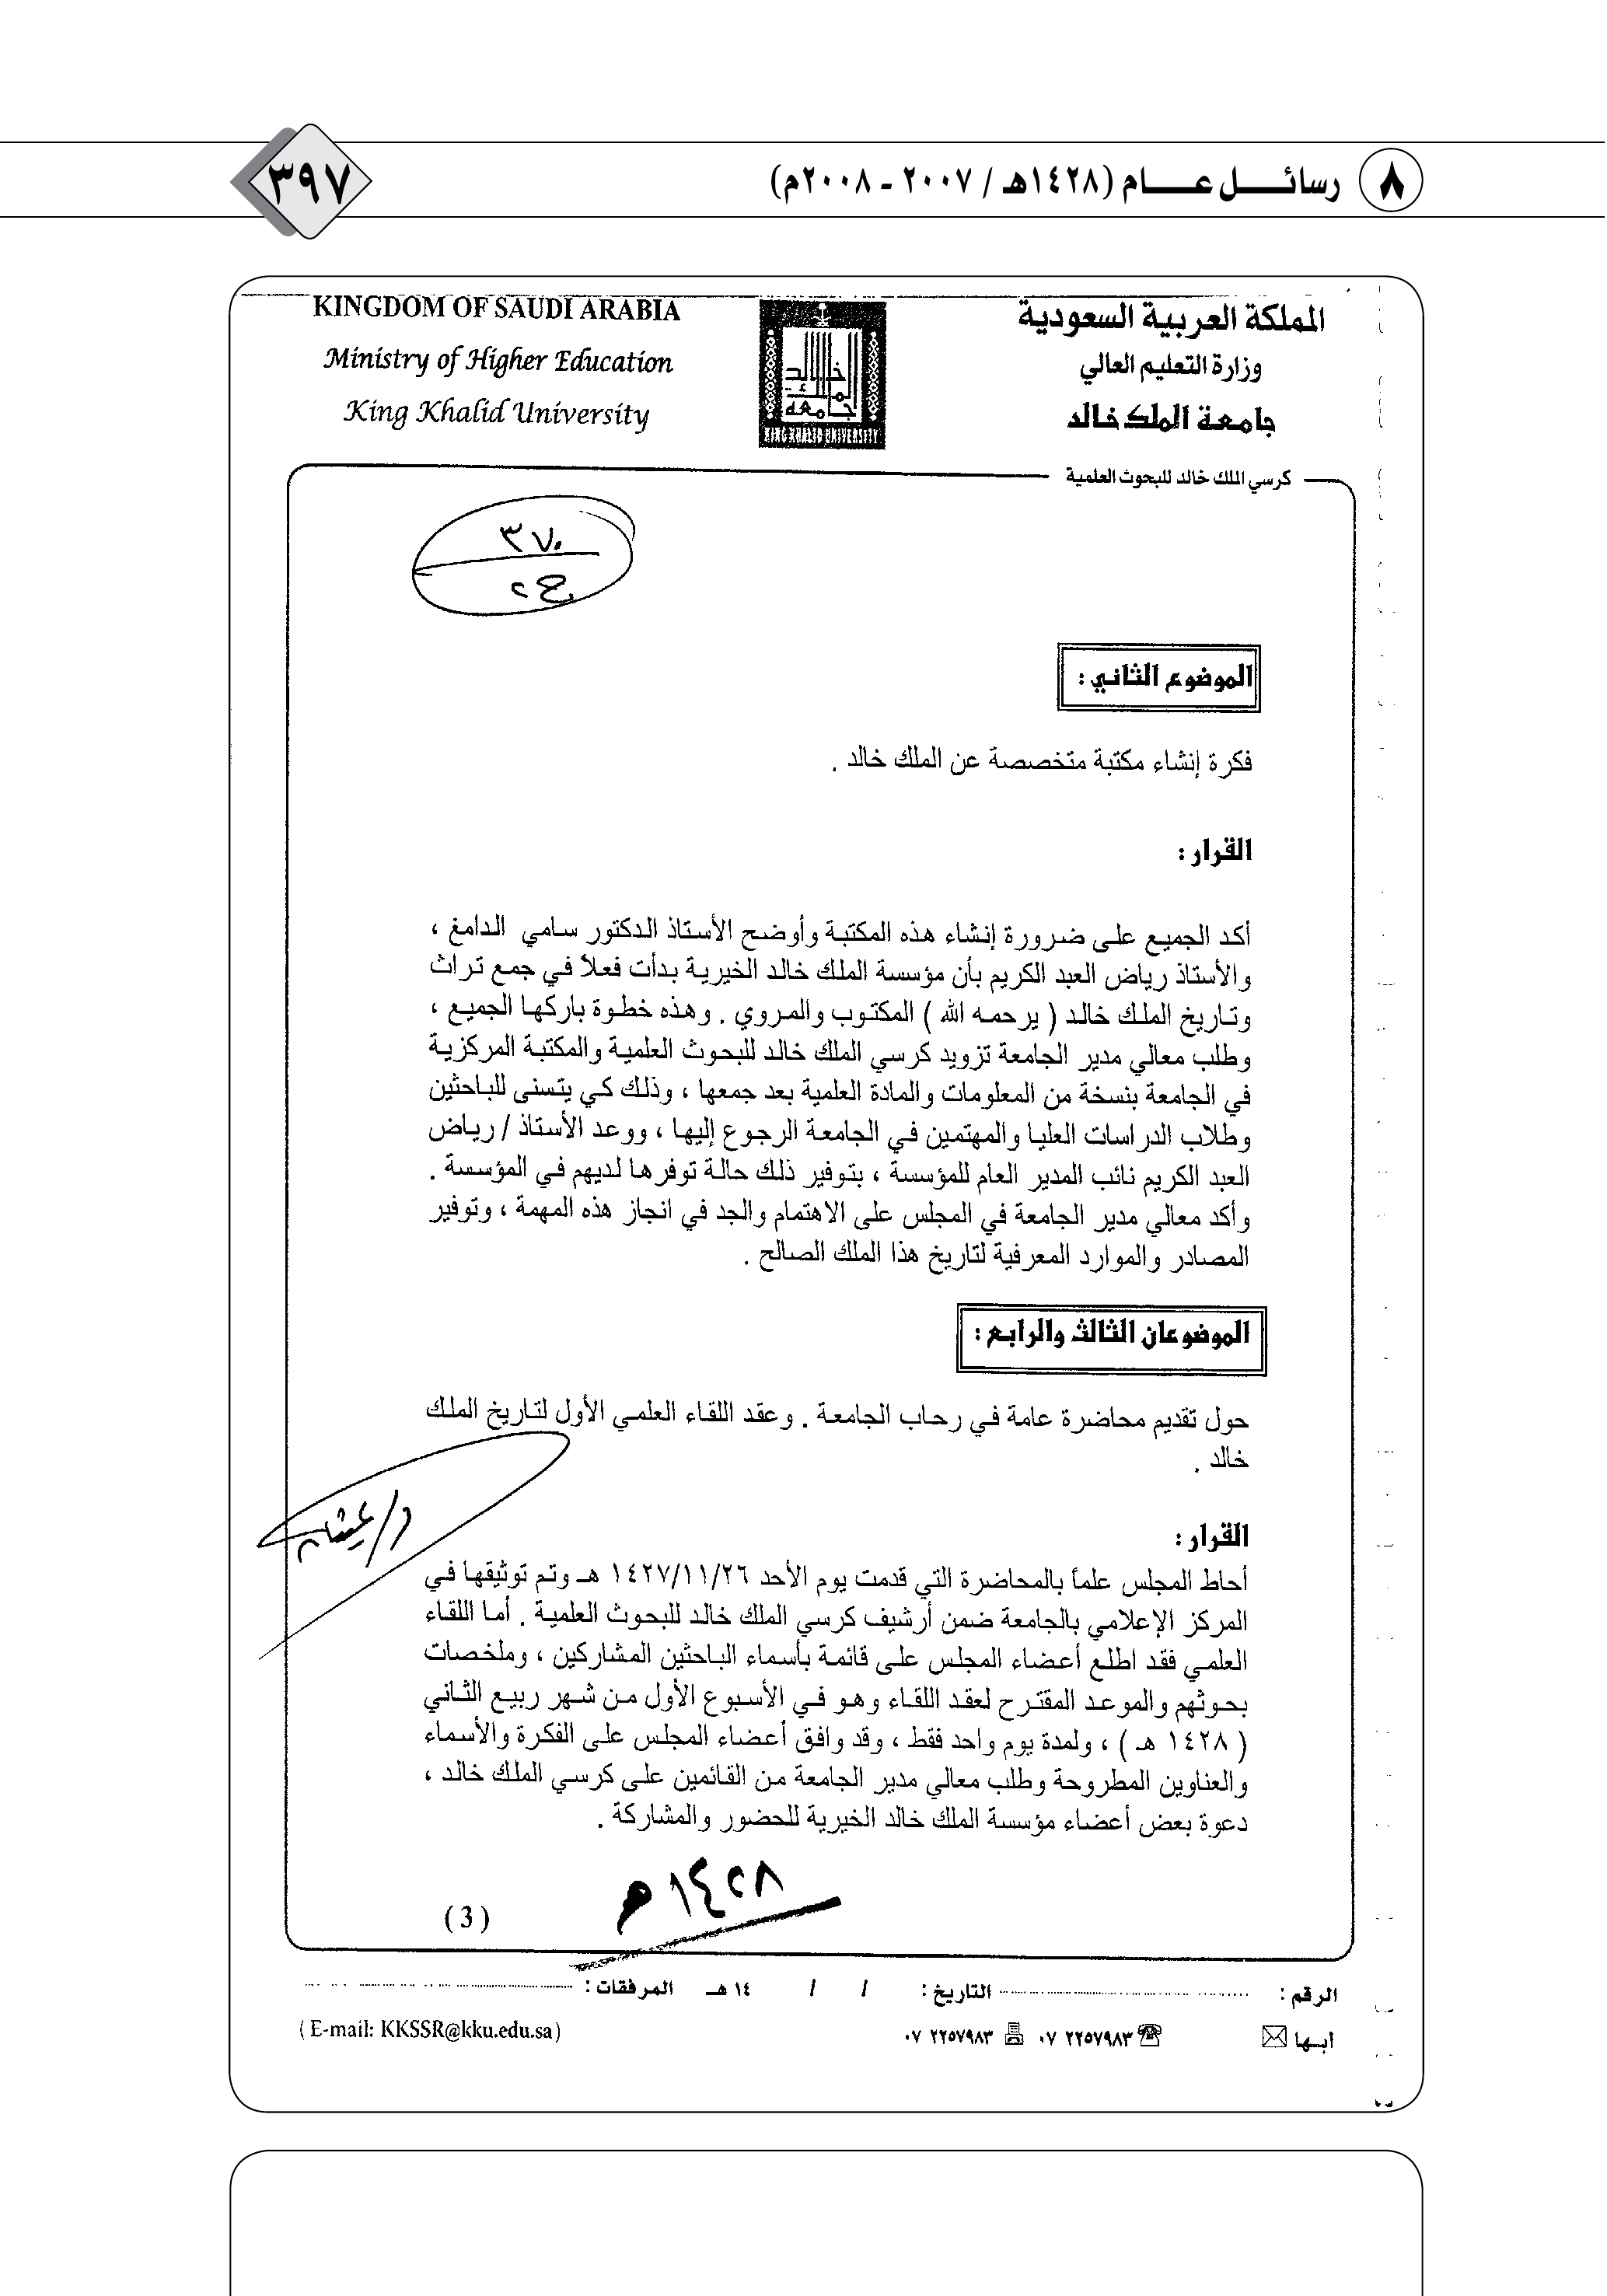 ٨ رسائـــــل عـــــام (١٤٢٨هـ / ٢٠٠٧ - ٢٠٠٨م)
٣٩٧
المملكة العربية السعودية
وزارة التعليم العالي
جامعة الملك خالد
KINGDOM OF SAUDI ARABIA
Ministry of Higher Education
King Khalid University
KING KHALID UNIVERSITY
كرسي الملك خالد للبحوث العلمية
٣٧٠
الموضوع الثاني :
فكرة إنشاء مكتبة متخصصة عن الملك خالد .
القرار :
أكد الجميع على ضرورة إنشاء هذه المكتبة وأوضح الأستاذ الدكتور سامي الدامغ ،
والأستاذ رياض العبد الكريم بأن مؤسسة الملك خالد الخيرية بدأت فعلاً في جمع تراث
وتاريخ الملك خالد ( يرحمه الله ) المكتوب والمروي . وهذه خطوة باركها الجميع ،
وطلب معالي مدير الجامعة تزويد كرسي الملك خالد للبحوث العلمية والمكتبة المركزية
في الجامعة بنسخة من المعلومات والمادة العلمية بعد جمعها ، وذلك كي يتسنى للباحثين
وطلاب الدراسات العليا والمهتمين في الجامعة الرجوع إليها ، ووعد الأستاذ / رياض
العبد الكريم نائب المدير العام للمؤسسة ، بتوفير ذلك حالة توفرها لديهم في المؤسسة .
وأكد معالي مدير الجامعة في المجلس على الاهتمام والجد في انجاز هذه المهمة ، وتوفير
المصادر والموارد المعرفية لتاريخ هذا الملك الصالح .
الموضوعان الثالث والرابع :
حول تقديم محاضرة عامة في رحاب الجامعة . وعقد اللقاء العلمي الأول لتاريخ الملك
خالد .
القرار :
أحاط المجلس علماً بالمحاضرة التي قدمت يوم الأحد ١٤٢٧/١١/٢٦ هـ وتم توثيقها في
المركز الإعلامي بالجامعة ضمن أرشيف كرسي الملك خالد للبحوث العلمية . أما اللقاء
العلمي فقد اطلع أعضاء المجلس على قائمة بأسماء الباحثين المشاركين ، وملخصات
بحوثهم والموعد المقترح لعقد اللقاء وهو في الأسبوع الأول من شهر ربيع الثاني
( ١٤٢٨ هـ ) ، ولمدة يوم واحد فقط ، وقد وافق أعضاء المجلس على الفكرة والأسماء
والعناوين المطروحة وطلب معالي مدير الجامعة من القائمين على كرسي الملك خالد ،
دعوة بعض أعضاء مؤسسة الملك خالد الخيرية للحضور والمشاركة .
١٤٢٨هـ
( 3 )
الرقم : التاريخ : / / ١٤ هـ المرفقات :
ابها ٠٧ ٢٢٥٧٩٨٣ ٠٧ ٢٢٥٧٩٨٣ ( E-mail: KKSSR@kku.edu.sa )